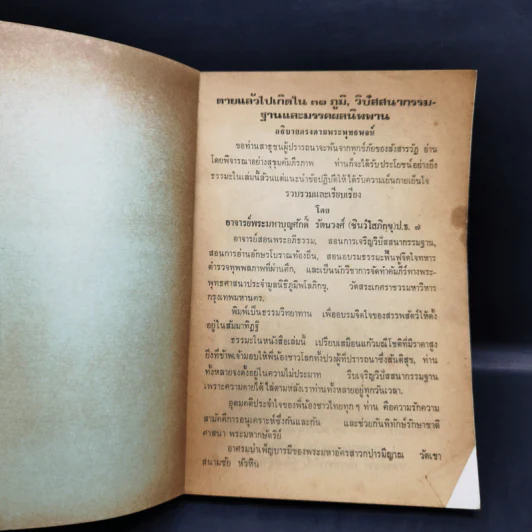 ตายแล้วไปเกิดใน ๓๑ ภูมิ, วิปัสสนากรรม-
ฐานและมรรคผลนิพพาน
อธิบายตรงตามพระพุทธพจน์
ขอท่านสาธุชนผู้ปรารถนาจะพ้นจากทุกข์ภัยของสังสารวัฏ อ่าน
โดยพิจารณาอย่างสุขุมคัมภีรภาพ ท่านก็จะได้รับประโยชน์อย่างยิ่ง
ธรรมะในเล่มนี้ล้วนแต่แนะนำข้อปฏิบัติให้ได้รับความเย็นกายเย็นใจ
รวบรวมและเรียบเรียง
โดย
อาจารย์พระมหาบุญศักดิ์ รัตนวงศ์ (ชินวํโสภิกขุ)ป.ธ. ๗
อาจารย์สอนพระอภิธรรม, สอนการเจริญวิปัสสนากรรมฐาน,
สอนการอ่านอักษรโบราณท้องถิ่น, สอนอบรมธรรมะฟื้นฟูจิตใจทหาร
ตำรวจทุพพลภาพที่ผ่านศึก, และเป็นนักวิชาการจัดทำคัมภีร์ทางพระ-
พุทธศาสนาประจำมูลนิธิภูมิพโลภิกขุ, วัดสระเกศราชวรมหาวิหาร
กรุงเทพมหานคร.
พิมพ์เป็นธรรมวิทยาทาน เพื่ออบรมจิตใจของสรรพสัตว์ให้ตั้ง
อยู่ในสัมมาทิฏฐิ
ธรรมะในหนังสือเล่มนี้ เปรียบเสมือนแก้วมณีโชติที่มีราคาสูง
ยิ่งที่ข้าพเจ้ามอบให้พี่น้องชาวโลกทั้งปวงผู้ที่ปรารถนาซึ่งสันติสุข, ท่าน
ทั้งหลายจงตั้งอยู่ในความไม่ประมาท รีบเจริญวิปัสสนากรรมฐาน
เพราะความตายได้ไล่ตามหลังเราท่านทั้งหลายอยู่ทุกวันเวลา.
อุดมคติประจำใจของพี่น้องชาวไทยทุก ๆ ท่าน คือความรักความ
สามัคคีการอนุเคราะห์ซึ่งกันและกัน และช่วยกันพิทักษ์รักษาชาติ
ศาสนา พระมหากษัตริย์
อาศรมบำเพ็ญบารมีของพระมหาอัครสาวกปารมีญาณ วัดเขา
สนามชัย หัวหิน